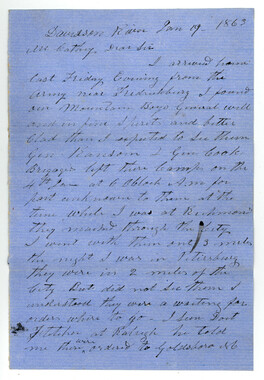 Davidson River Jan 19 1863
Mr Cathey, Dear Sir
I arrived home
last Friday Evening from the
army near Fredricksburg I found
our Mountain Boys General well
and in fine Spirits and better
Clad than I expected to See them
Gen Ransom & Gen Cook
Brigades left there Camp on the
at 6 Oblock A.m for
part unknown to them at the
time While I was at Richmond
they marched through the City
I went with them one 3 miles
the night I was in Petersburg
they were in 2 miles of the
City But did not See them I
understood they were a waiting for
orders where to go - I Saw
at Raleigh he told
me they are ordered to Goldsboro NC